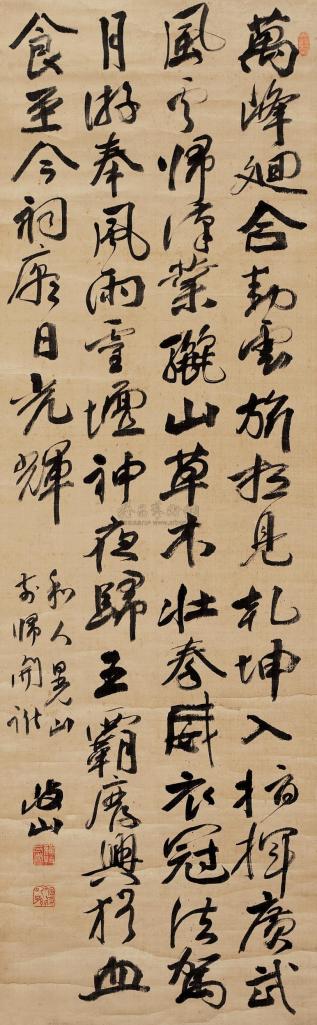 萬峰廻合動雲旂想見乾坤入指揮廣武
風雲歸漢業驪山草木壯秦威衣冠法駕
月游奉風雨靈壇神夜歸王霸廢興猶血
食至今祠廟日光輝
和人晃山
岐山